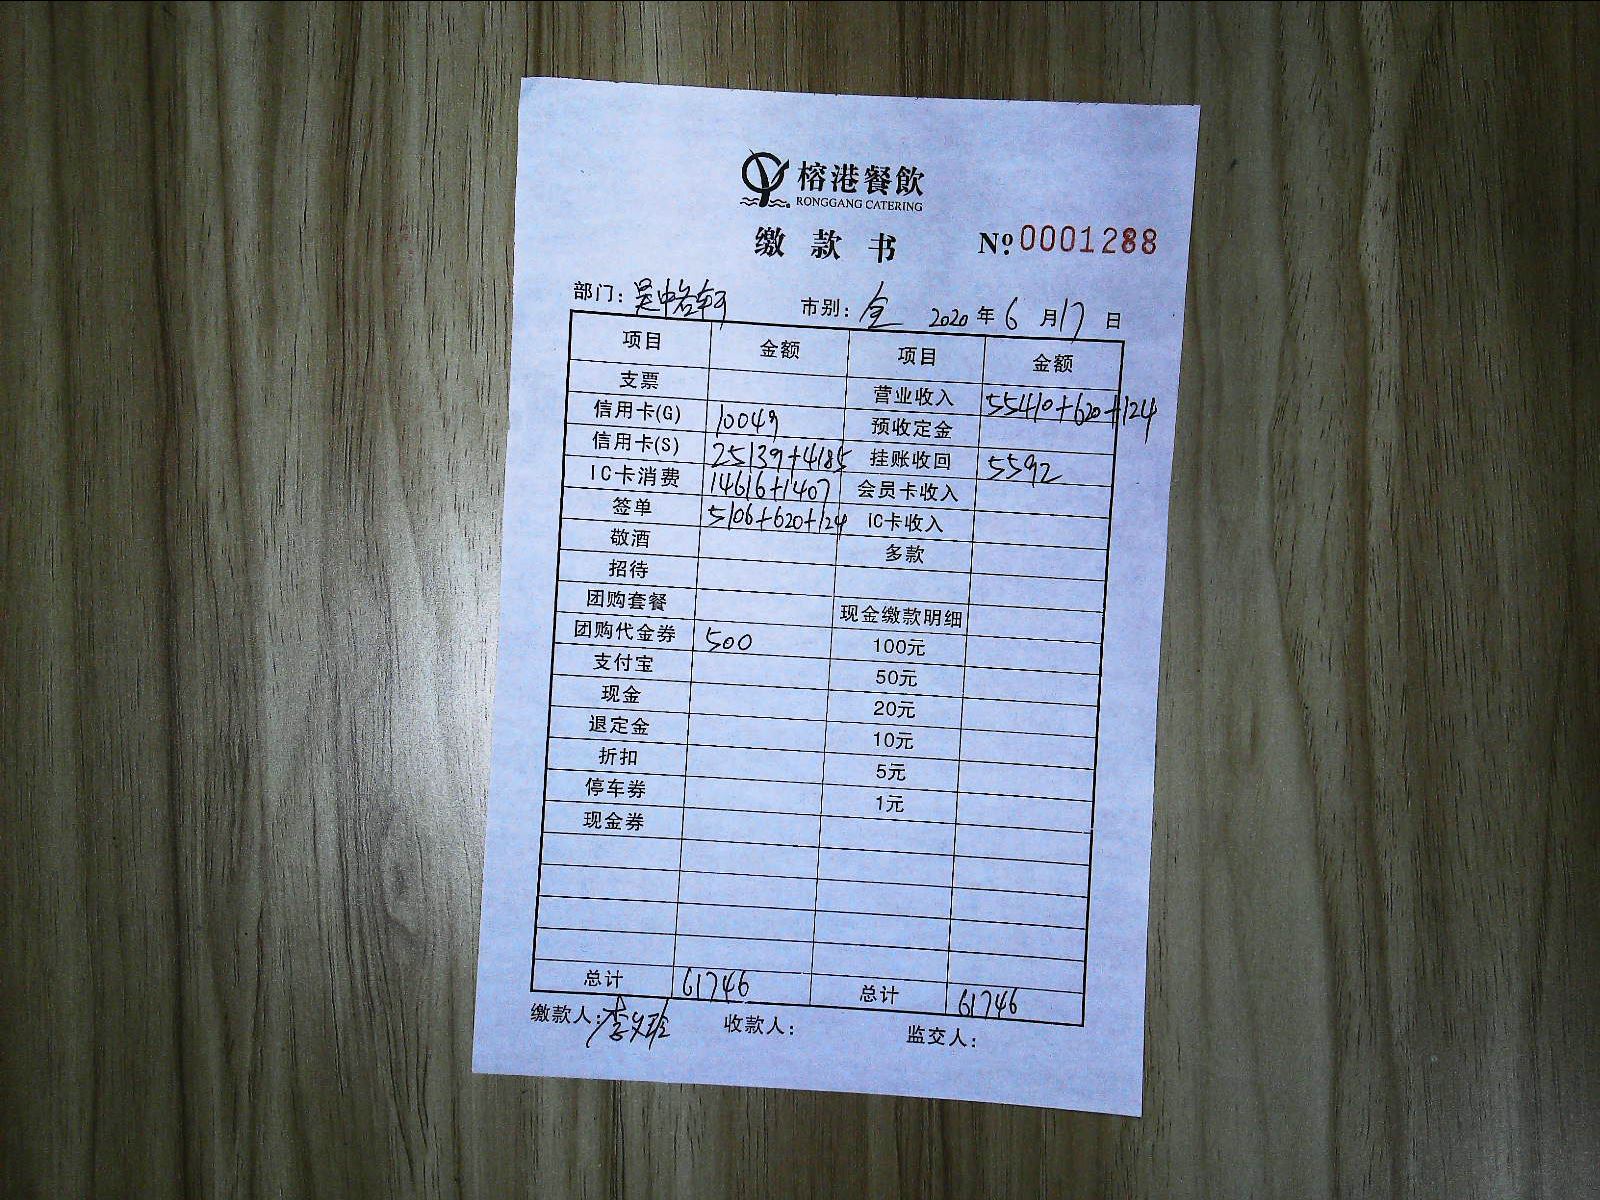 榕港餐飲
RONGGANG CATERING
缴款书 №0001288
部门: 吴中 市别: 全 2020 年 6 月 17 日
项目 金额 项目 金额
支票 营业收入 55410+620+124
信用卡(G) 10049 预收定金
信用卡(S) 25139+4185 挂账收回 5592
IC卡消费 14616+1407 会员卡收入
签单 5106+620+124 IC卡收入
敬酒 多款
招待
团购套餐 现金缴款明细
团购代金券 500 100元
支付宝 50元
现金 20元
退定金 10元
折扣 5元
停车券 1元
现金券
总计 61746 总计 61746
缴款人: 李 收款人: 监交人: